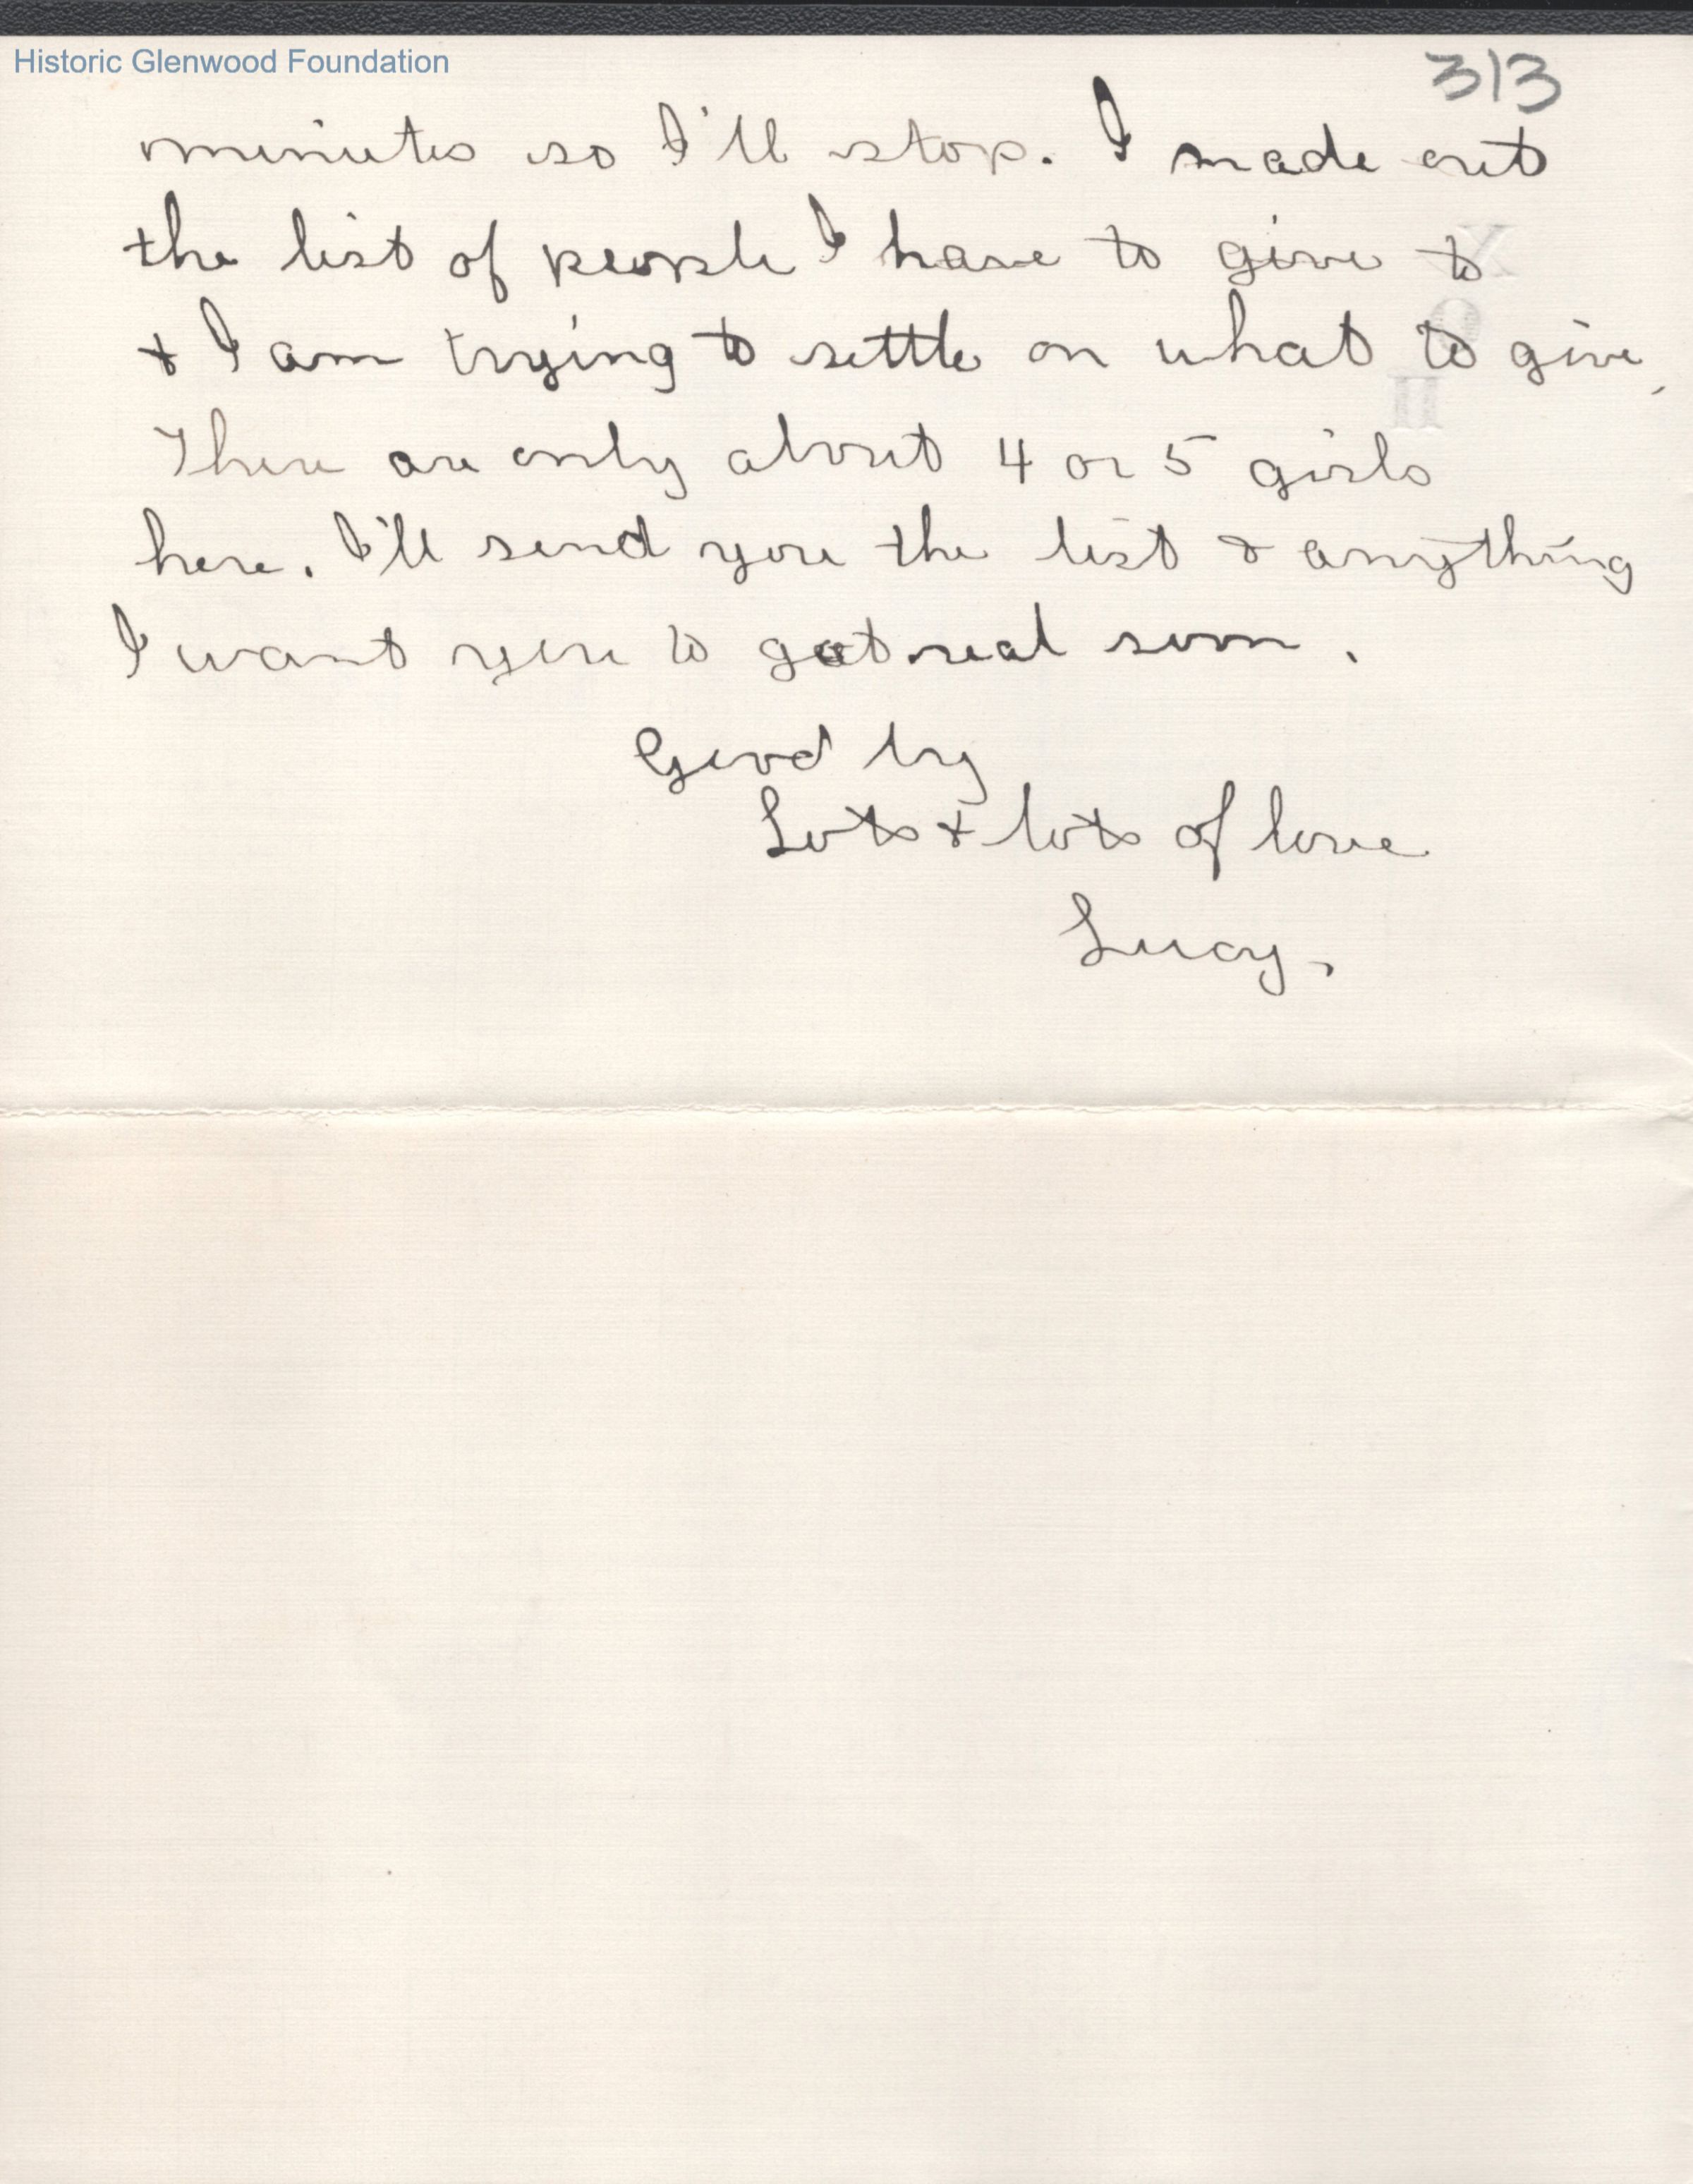 Historic Glenwood Foundation
313
minutes so I'll stop. I made out
the list of people I have to give to
+ I am trying to settle on what to give.
There are only about 4 or 5 girls
here. I'll send you the list & anything
I want you to get real soon.
Good by
Lots + lots of love
Lucy.